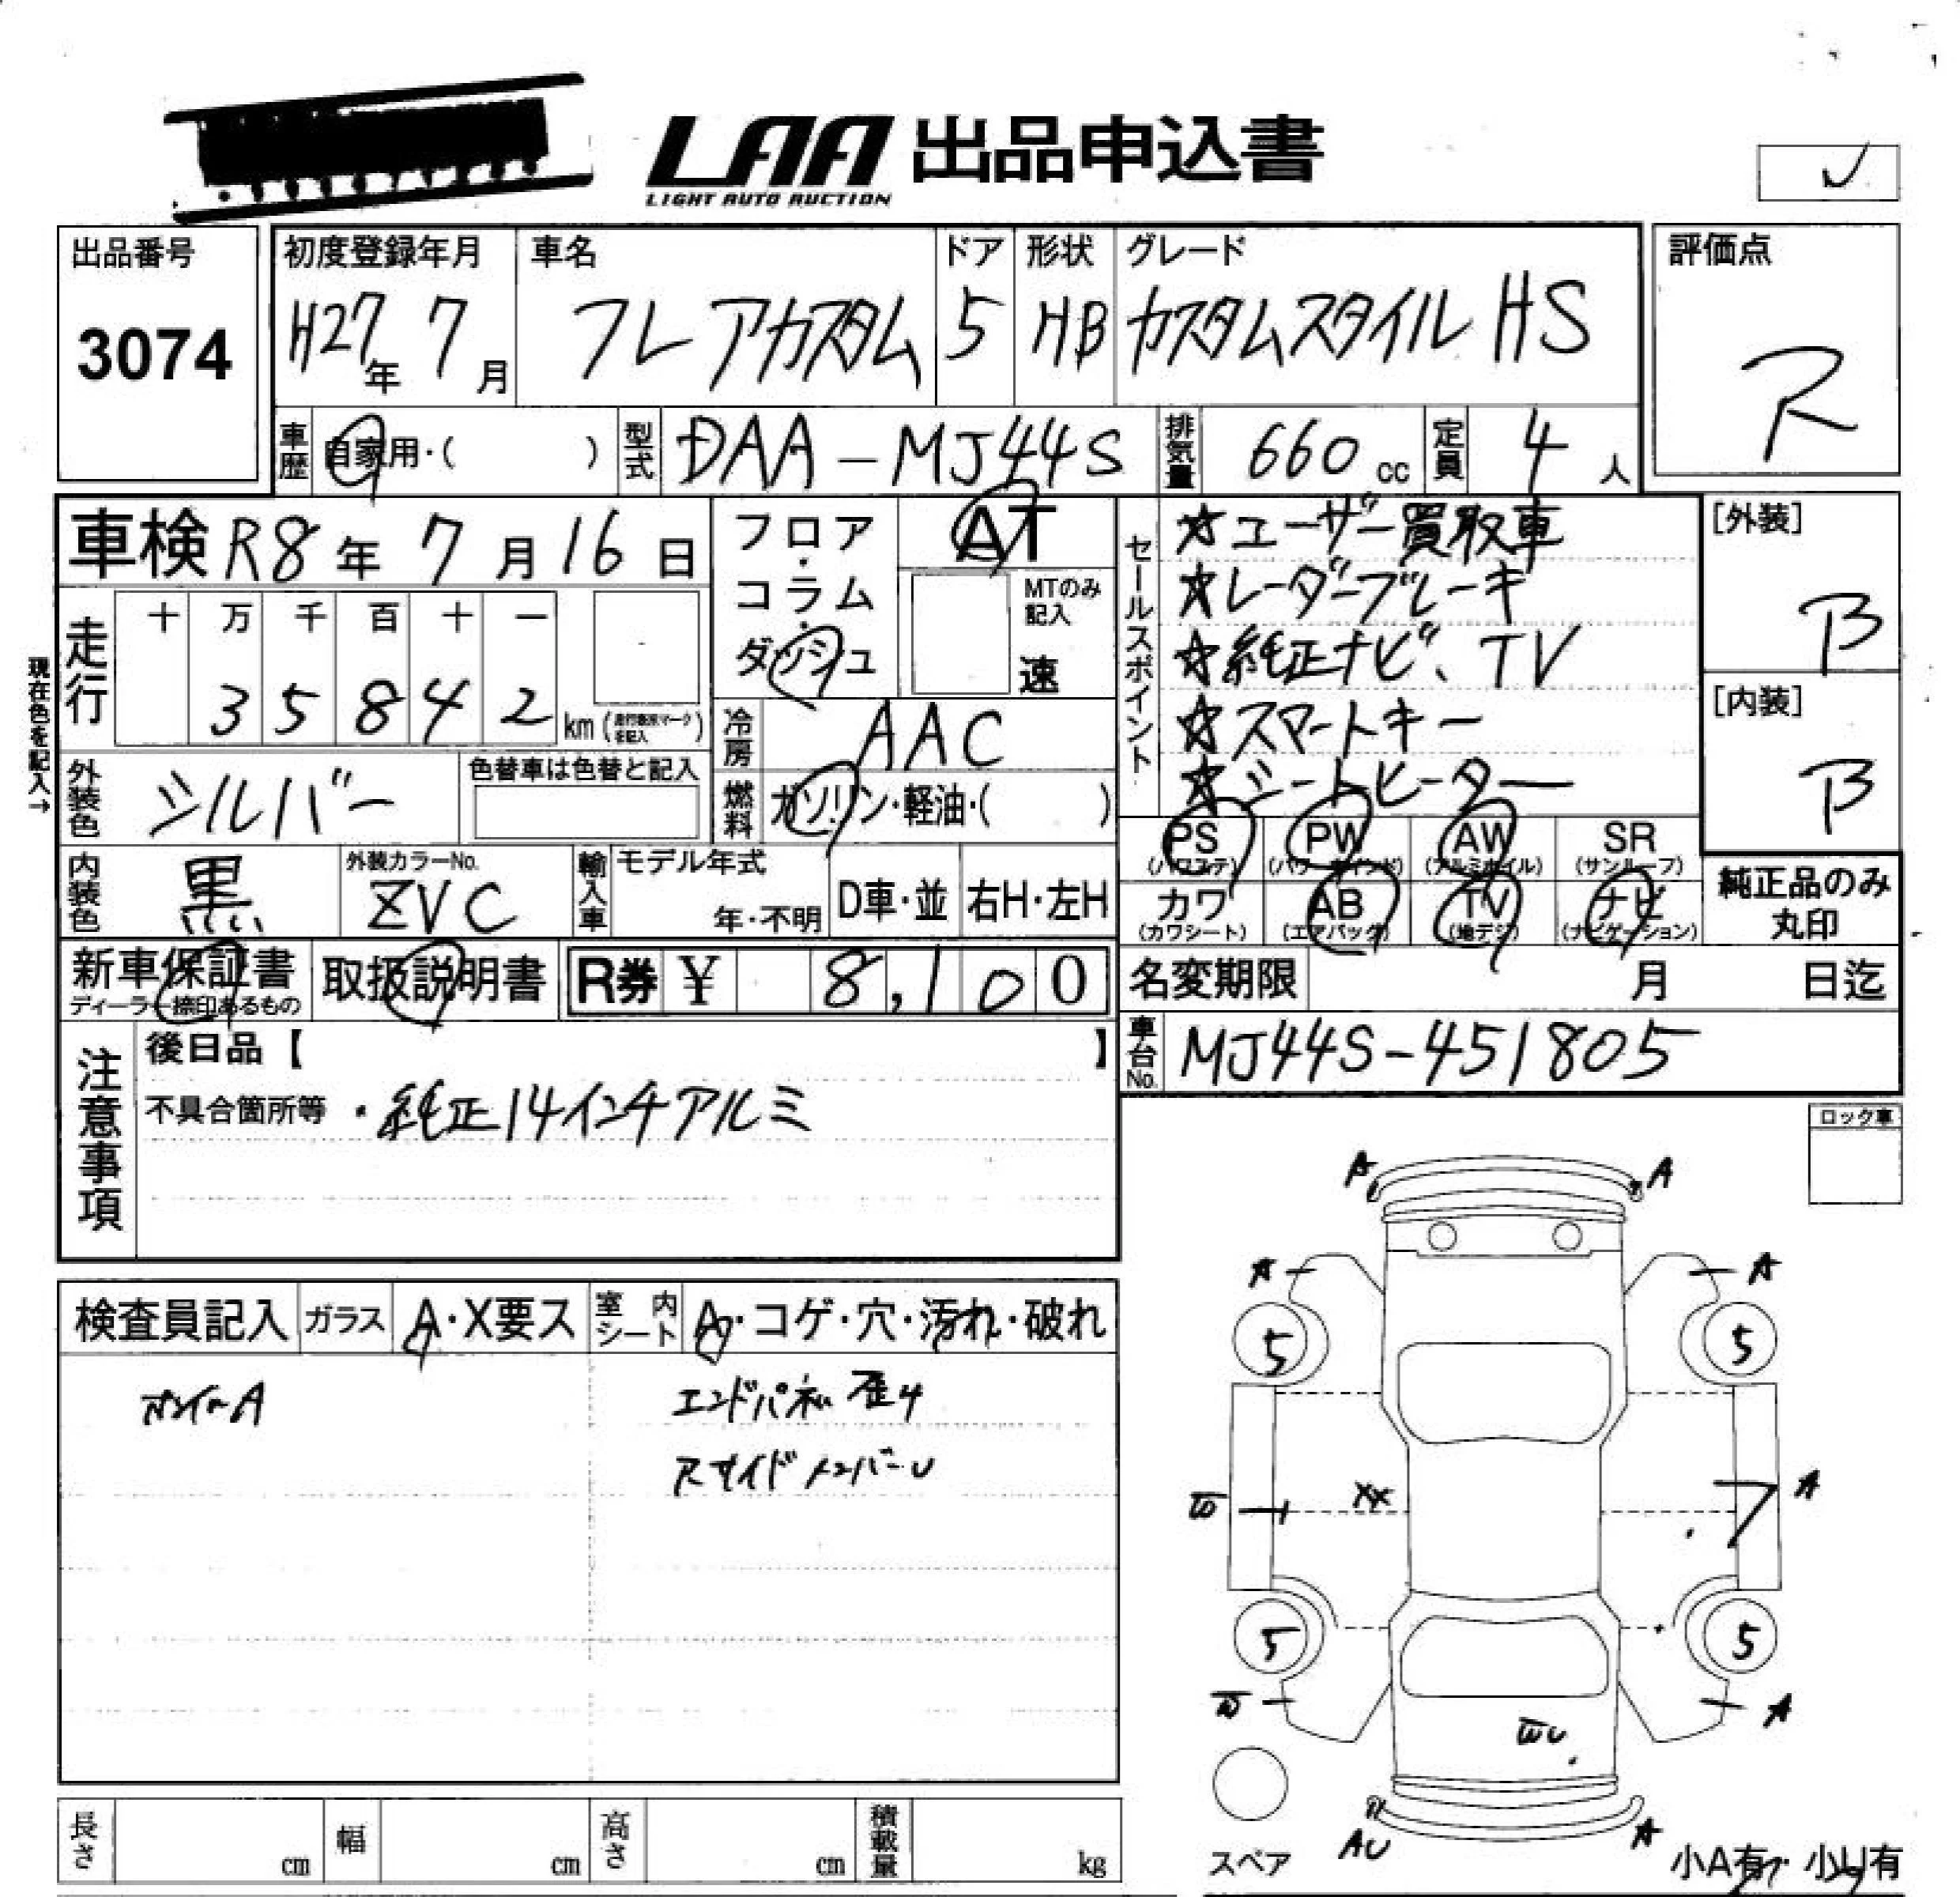 LAA 出品申込書
LIGHT AUTO AUCTION
✓
出品番号
3074
初度登録年月
H27年 7月
車名
フレアカスタム
ドア
5
形状
HB
グレード
カスタムスタイル HS
評価点
R
車歴 自家用・( )
型式 DAA-MJ44S
排気量 660 cc
定員 4人
車検 R8年 7月 16日
フロア・コラム・ダッシュ
AT
MTのみ記入
速
セールスポイント
☆ユーザー買取車
☆レーダーブレーキ
☆純正ナビ、TV
☆スマートキー
☆シートヒーター
[外装]
B
[内装]
B
現在色を記入→
走行
十 万 千 百 十 一
3 5 8 4 2 km
冷房 AAC
外装色 シルバー
色替車は色替と記入
燃料 ガソリン・軽油・( )
内装色 黒
外装カラーNo.
ZVC
輸入車 モデル年式
年・不明
D車・並
右H・左H
PS (パワステ)
PW (パワーウインド)
AW (アルミホイル)
SR (サンルーフ)
カワ (カワシート)
AB (エアバック)
TV (地デジ)
ナビ (ナビゲーション)
純正品のみ丸印
新車保証書
ディーラー捺印あるもの
取扱説明書
R券 ¥ 8,100
名変期限 月 日迄
注意事項
後日品【 】
不具合箇所等 ・純正14インチアルミ
車台No. MJ44S-451805
ロック車
検査員記入
ガラス A・X要ス
室内シート A・コゲ・穴・汚れ・破れ
エンドパネル 歪み
RサイドメンバーU
A A
A A
5 5
XX A
5 5
A
AU A
スペア
小A有・小U有
長さ cm
幅 cm
高さ cm
積載量 kg